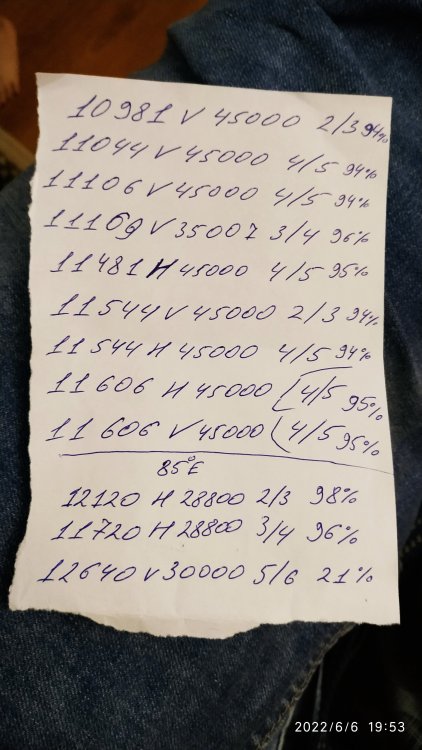 10981 V 45000 2/3 94%
11044 V 45000 4/5 94%
11106 V 45000 4/5 94%
11169 V 35007 3/4 96%
11481 H 45000 4/5 95%
11544 V 45000 2/3 94%
11544 H 45000 4/5 94%
11606 H 45000 4/5 95%
11606 V 45000 4/5 95%
85°E
12120 H 28800 2/3 98%
11720 H 28800 3/4 96%
12640 V 30000 5/6 21%
2022/6/6 19:53